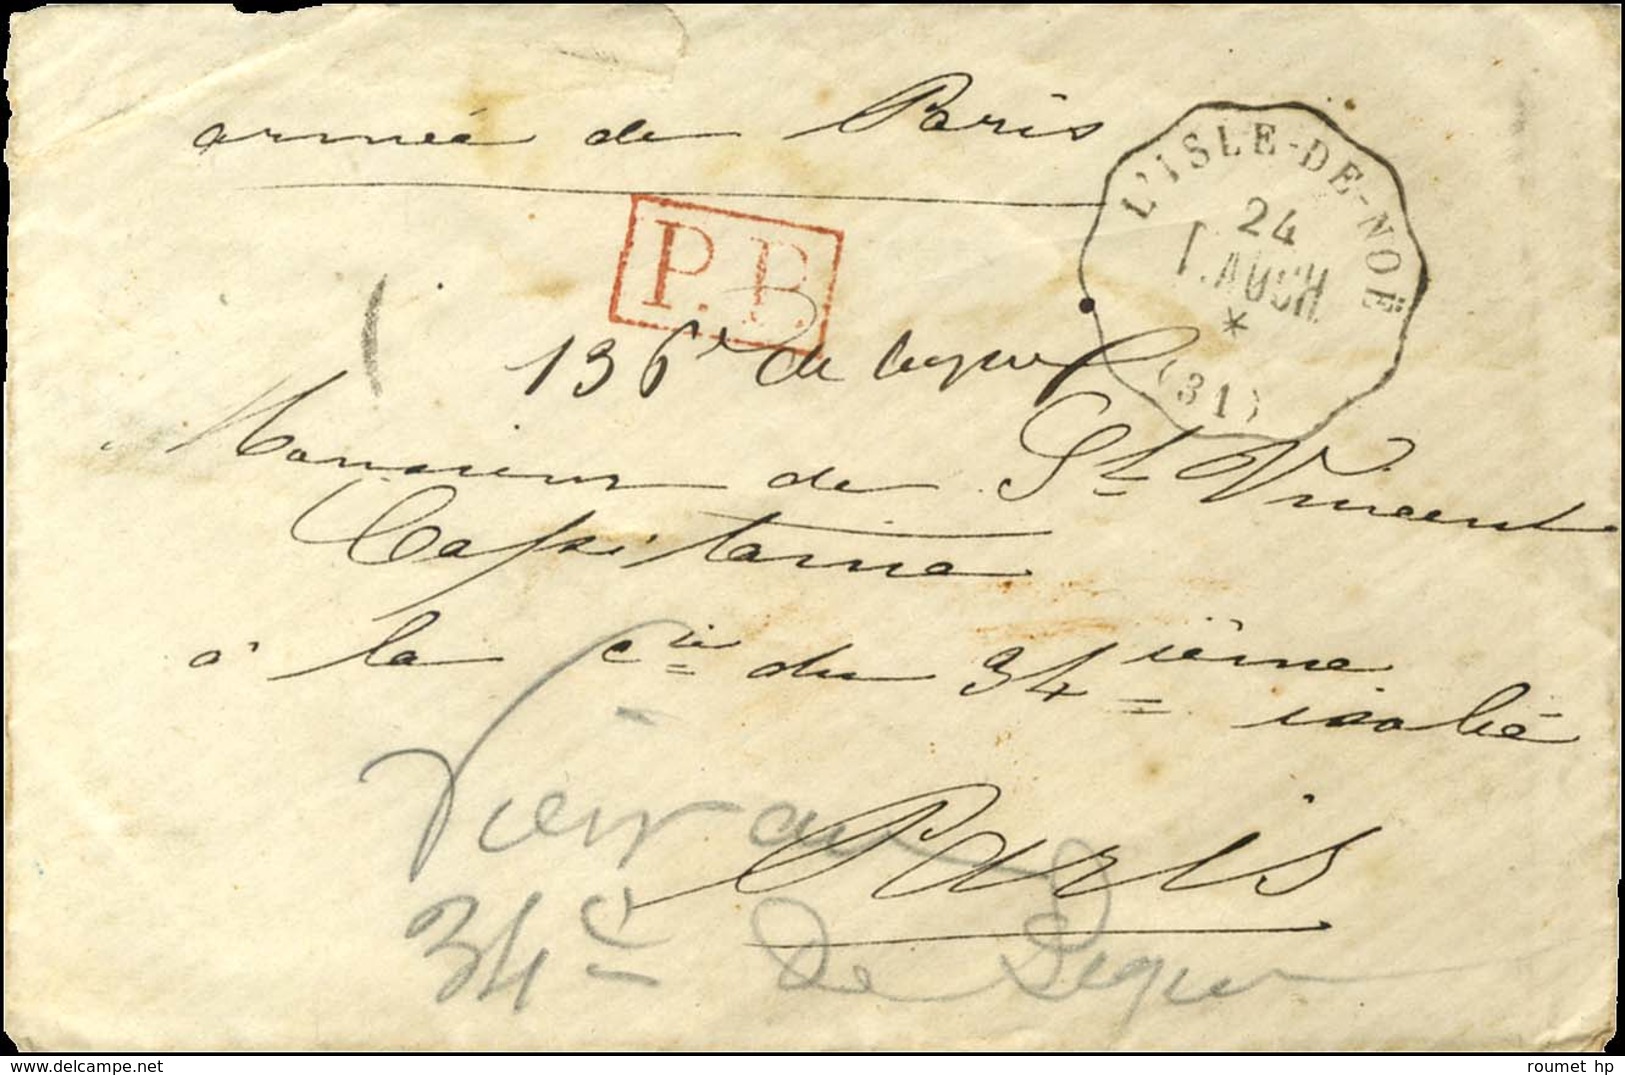 armée de Paris
L'ISLE-DE-NOÉ
24
T. AUCH
*
(31)
P.P.
136e de ligne
Monsieur de St Vincent
Capitaine
à la cie du 34=ième isolée
Paris
Voir au
34e De Ligne
roumet hp